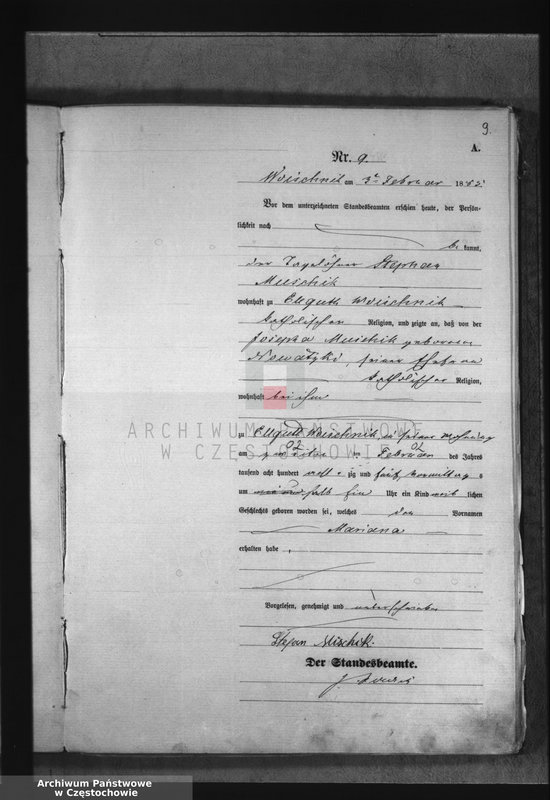 9.
A.
Nr. 9.
Woischnik am 3t Februar 1885
Vor dem unterzeichneten Standesbeamten erschien heute, der Persön-
lichkeit nach
be kannt,
der Tagelöhner Stephan
Muschik
wohnhaft zu Ellguth Woischnik
katholischer Religion, und zeigte an, daß von der
Josepha Muschik geborenen
seiner Ehefrau
katholischer Religion,
wohnhaft bei ihm
ARCHIWUM PAŃSTWOWE
W CZĘSTOCHOWIE
zu Ellguth Woischnik in seiner Wohnung
am zweiten Februar des Jahres
tausend acht hundert acht zig und fünf Vormittags
um halb Ein Uhr ein Kind weib lichen
Geschlechts geboren worden sei, welches den Vornamen
Mariana
erhalten habe.
Vorgelesen, genehmigt und unterschrieben
Stefan Mischik.
Der Standesbeamte.
Archiwum Państwowe
w Częstochowie